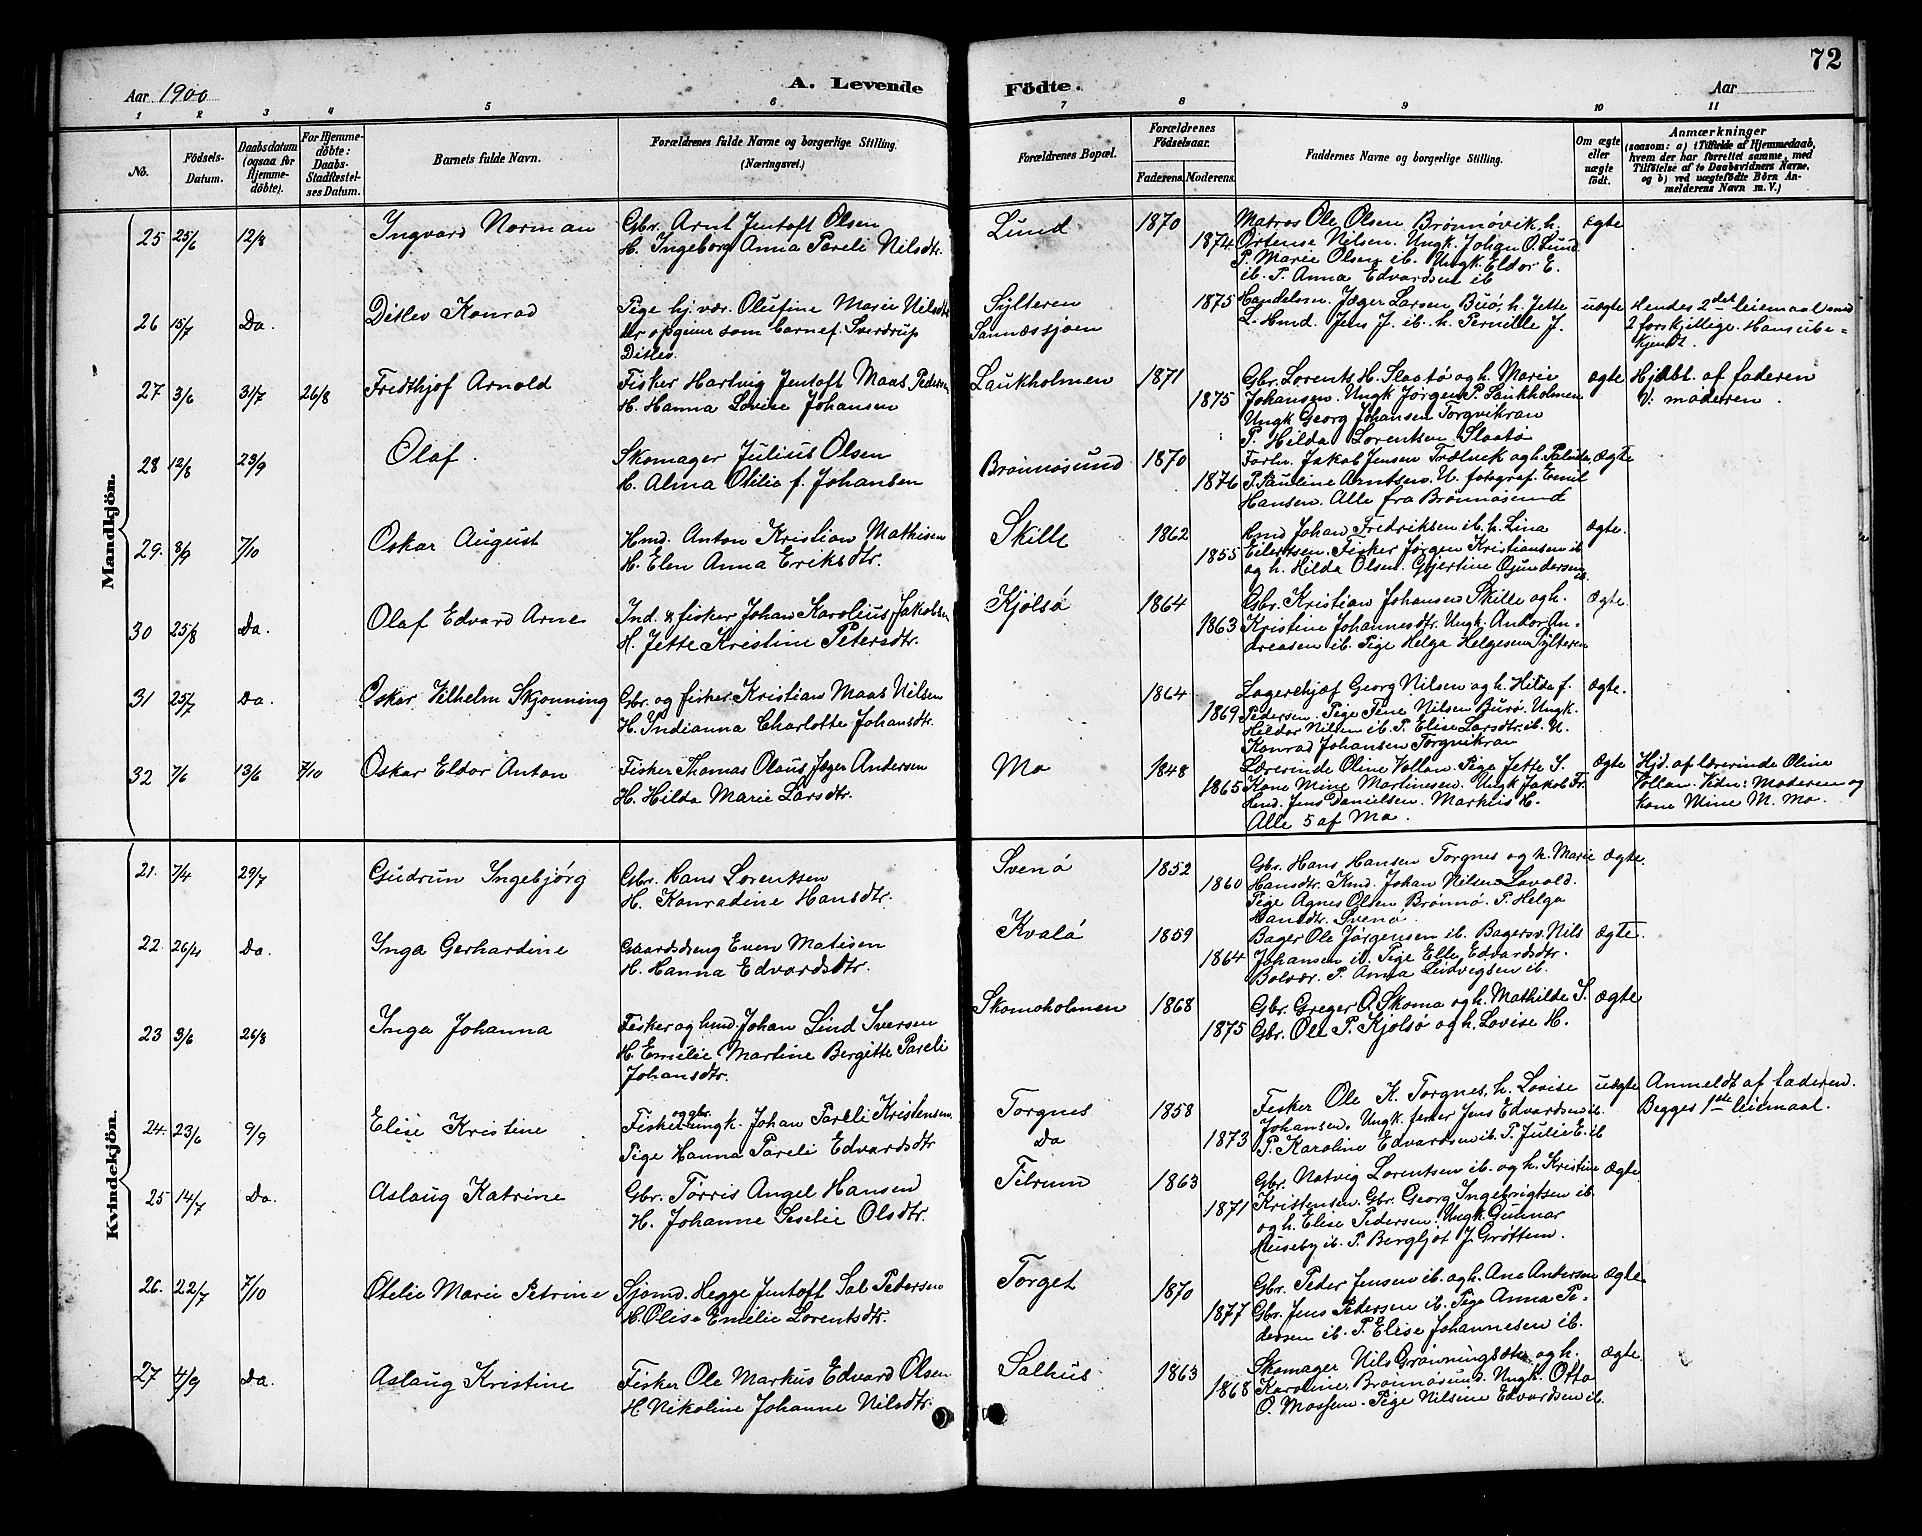 72
Aar 1900
A. Levende
Födte.
Aar
1 2 3 4 5 6 7 8 9 10 11
No.
Födsels-
Datum.
Daabsdatum
(ogsaa for
Hjemme-
döbte).
For Hjemme-
döbte:
Daabs-
Stadfæstel-
ses Datum.
Barnets fulde Navn.
Forældrenes fulde Navne og borgerlige Stilling.
(Næringsvei.)
Forældrenes Bopæl.
Forældrenes
Födselsaar.
Faderens. Moderens.
Faddernes Navne og borgerlige Stilling.
Om ægte
eller
uægte
födt.
Anmærkninger
(saasom: a) i Tilfælde af Hjemmedaab,
hvem der har forrettet samme, med
Tilföielse af to Daabsvidners Navne,
og b) ved uægtefödte Börn An-
melderens Navn m. V.)
Mandkjön.
25 25/6 12/8 Ingvard Norman
Gbr. Arnt Jentoft Olsen
H. Ingeborg Anna Pareli Nilsdtr.
Lund 1870 1874
Matros Ole Olsen Brønnøvik h.
Ortense Nilsen. Ungk. Johan O. Lund
P. Marie Olsen ib. Ungk. Eldor E.
ib. P. Anna Edvardsen ib
ægte
26 15/7 Do. Ditlev Konrad
Pige hj.vær. Olufine Marie Nilsdtr
der opgiver som barnef. Sverdrup
Ditlev.
Sylteren
Sannæssjøen
1875
Handelsm. Jæger Larsen Burø, h. Jette
L. Hmd. Jens J. ib. h. Pernille J.
uægte
Hendes 2det leiemaal med
2 forskjellige. Hans ube-
kjendt.
27 3/6 31/7 26/8 Fridthjof Arnold
Fisker Hartvig Jentoft Maas Pedersen
H. Hanna Lovise Johansen
Laukholmen 1871 1875
Gbr. Lorents H. Slaatø og h. Marie
Johansen. Ungk Jørgen P. Laukholmen
Ungk Georg Johansen Torgvikran
P. Hilda Lorentsen Slaatø
ægte
Hjdøbt. af faderen
V: moderen.
28 12/8 23/9 Olaf.
Skomager Julius Olsen
H. Alma Otilie f. Johansen
Brønnøsund 1870 1876
Forhv. Jakob Jensen Trælvik og h. Palida.
P. Pauline Arntsen. U. fotograf. Emil
Hansen. Alle fra Brønnøsund
ægte
29. 8/9 7/10 Oskar August
Hmd. Anton Kristian Mathisen
H. Elen Anna Eriksdtr.
Skille 1862 1855
Hmd Johan Fredriksen ib. h. Lina
Eilertsen. Fisker Jørgen Kristiansen ib
og h. Hilda Olsen. Gjertine Gundersen
ib.
ægte.
30 25/8 Do. Olaf Edvard Arne
Ind. & fisker Johan Karolius Jakobsen
H. Jette Kristine Petersdtr.
Kjølsø 1864 1863
Gbr. Kristian Johansen Skille og h.
Kristine Johannesdtr. Ungk. Andor An-
dreasen ib. Pige Helga Helgesen Sylteren
ægte.
31 25/7 Do. Oskar Vilhelm Skjønning
Gbr. og fisker Kristian Maas Nilsen
H. Indianna Charlotte Johansdtr.
1864 1869
Lagerchjef Georg Nilsen og h. Hilda f.
Pedersen. Pige Tene Nilsen Burø. Ungk.
Hildor Nilsen ib. P. Elise Larsdtr. ib. U.
Konrad Johansen Torgvikran
ægte.
32 7/6 13/6 7/10 Oskar Eldor Anton
Fisker Thomas Olaus Jæger Andersen
H. Hilda Marie Larsdtr.
Mo 1848 1865
Lærerinde Oline Vollan. Pige Jette S.
Kone Mine Martinesen. Ungk Jakob Fr.
Hmd. Jens Danielsen. Markus H.
Alle 5 af Mo.
ægte
Hjd. af lærerinde Oline
Vollan. Vidn: Moderen og
kone Mine M. Mo.
Kvindekjön.
21. 7/4 29/7 Gudrun Ingebjørg
Gbr. Hans Lorentsen
H. Konradine Hansdtr.
Svenø 1852 1860
Gbr. Hans Hansen Torgnes og h. Marie
Hansdtr. Kmd. Johan Nilsen Lovold.
Pige Agnes Olsen Brønnø. P. Helga
Hansdtr. Svenø.
ægte.
22. 26/4 Do. Inga Gerhardine
Gaardsdreng Even Matisen
H. Hanna Edvardsdtr.
Kvalø 1859 1864
Bager Ole Jørgensen ib. Bagersv. Nils
Johansen ib. Pige Elle Edvardsdtr.
Bolvær. P. Anna Ludvigsen ib.
ægte.
23 3/6 26/8 Inga Johanna
Fisker og hmd. Johan Lind Iversen
H. Emelie Martine Bergitte Pareli
Johansdtr.
Skomoholmen 1868 1875
Gbr. Greger O. Skoma og h. Mathilde S.
Gbr. Ole P. Kjølsø og h. Lovise H.
ægte
24. 23/6 9/9 Elise Kristine
Fisker og gbr. ungk. Johan Pareli Kristensen
Pige Hanna Pareli Edvardsdtr
Torgnes
Do
1858 1873
Fisker Ole K. Torgnes, h. Lovise
Johansen. Ungk. fisker Jens Edvardsen ib.
P. Karoline Edvardsen ib. P. Julie E. ib
uægte
Anmeldt af faderen.
Begges 1ste leiemaal.
25 14/7 Do. Aslaug Katrine
Gbr. Tørris Angel Hansen
H. Johanne Seselie Olsdtr.
Tilrum 1863 1871
Gbr. Natvig Lorentsen ib. og h. Kristine
Kristensen. Gbr. Georg Ingebrigtsen ib.
og h. Elise Pedersen. Ungk. Gunnar
Huseby ib. P. Bergljot J. Grøttem.
ægte
26. 22/7 7/10 Otelie Marie Petrine
Sjømd. Hegge Jentoft Sal Pedersen
H. Olise Emelie Lorentsdtr.
Torget 1870 1877
Gbr. Peder Jensen ib. og h. Ane Andersen
Gbr. Jens Pedersen ib. Pige Anna Pe-
dersen ib. P. Elise Johannesen ib.
ægte
27 4/9 Do. Aslaug Kristine
Fisker Ole Markus Edvard Olsen
H. Nikoline Johanne Nilsdtr.
Salhus. 1863 1868
Skomager Nils Grønningsæter og h.
Karoline, Brønnøsund. Ungk. Otto
O. Mossem. Pige Nilsine Edvardsen ib.
ægte.